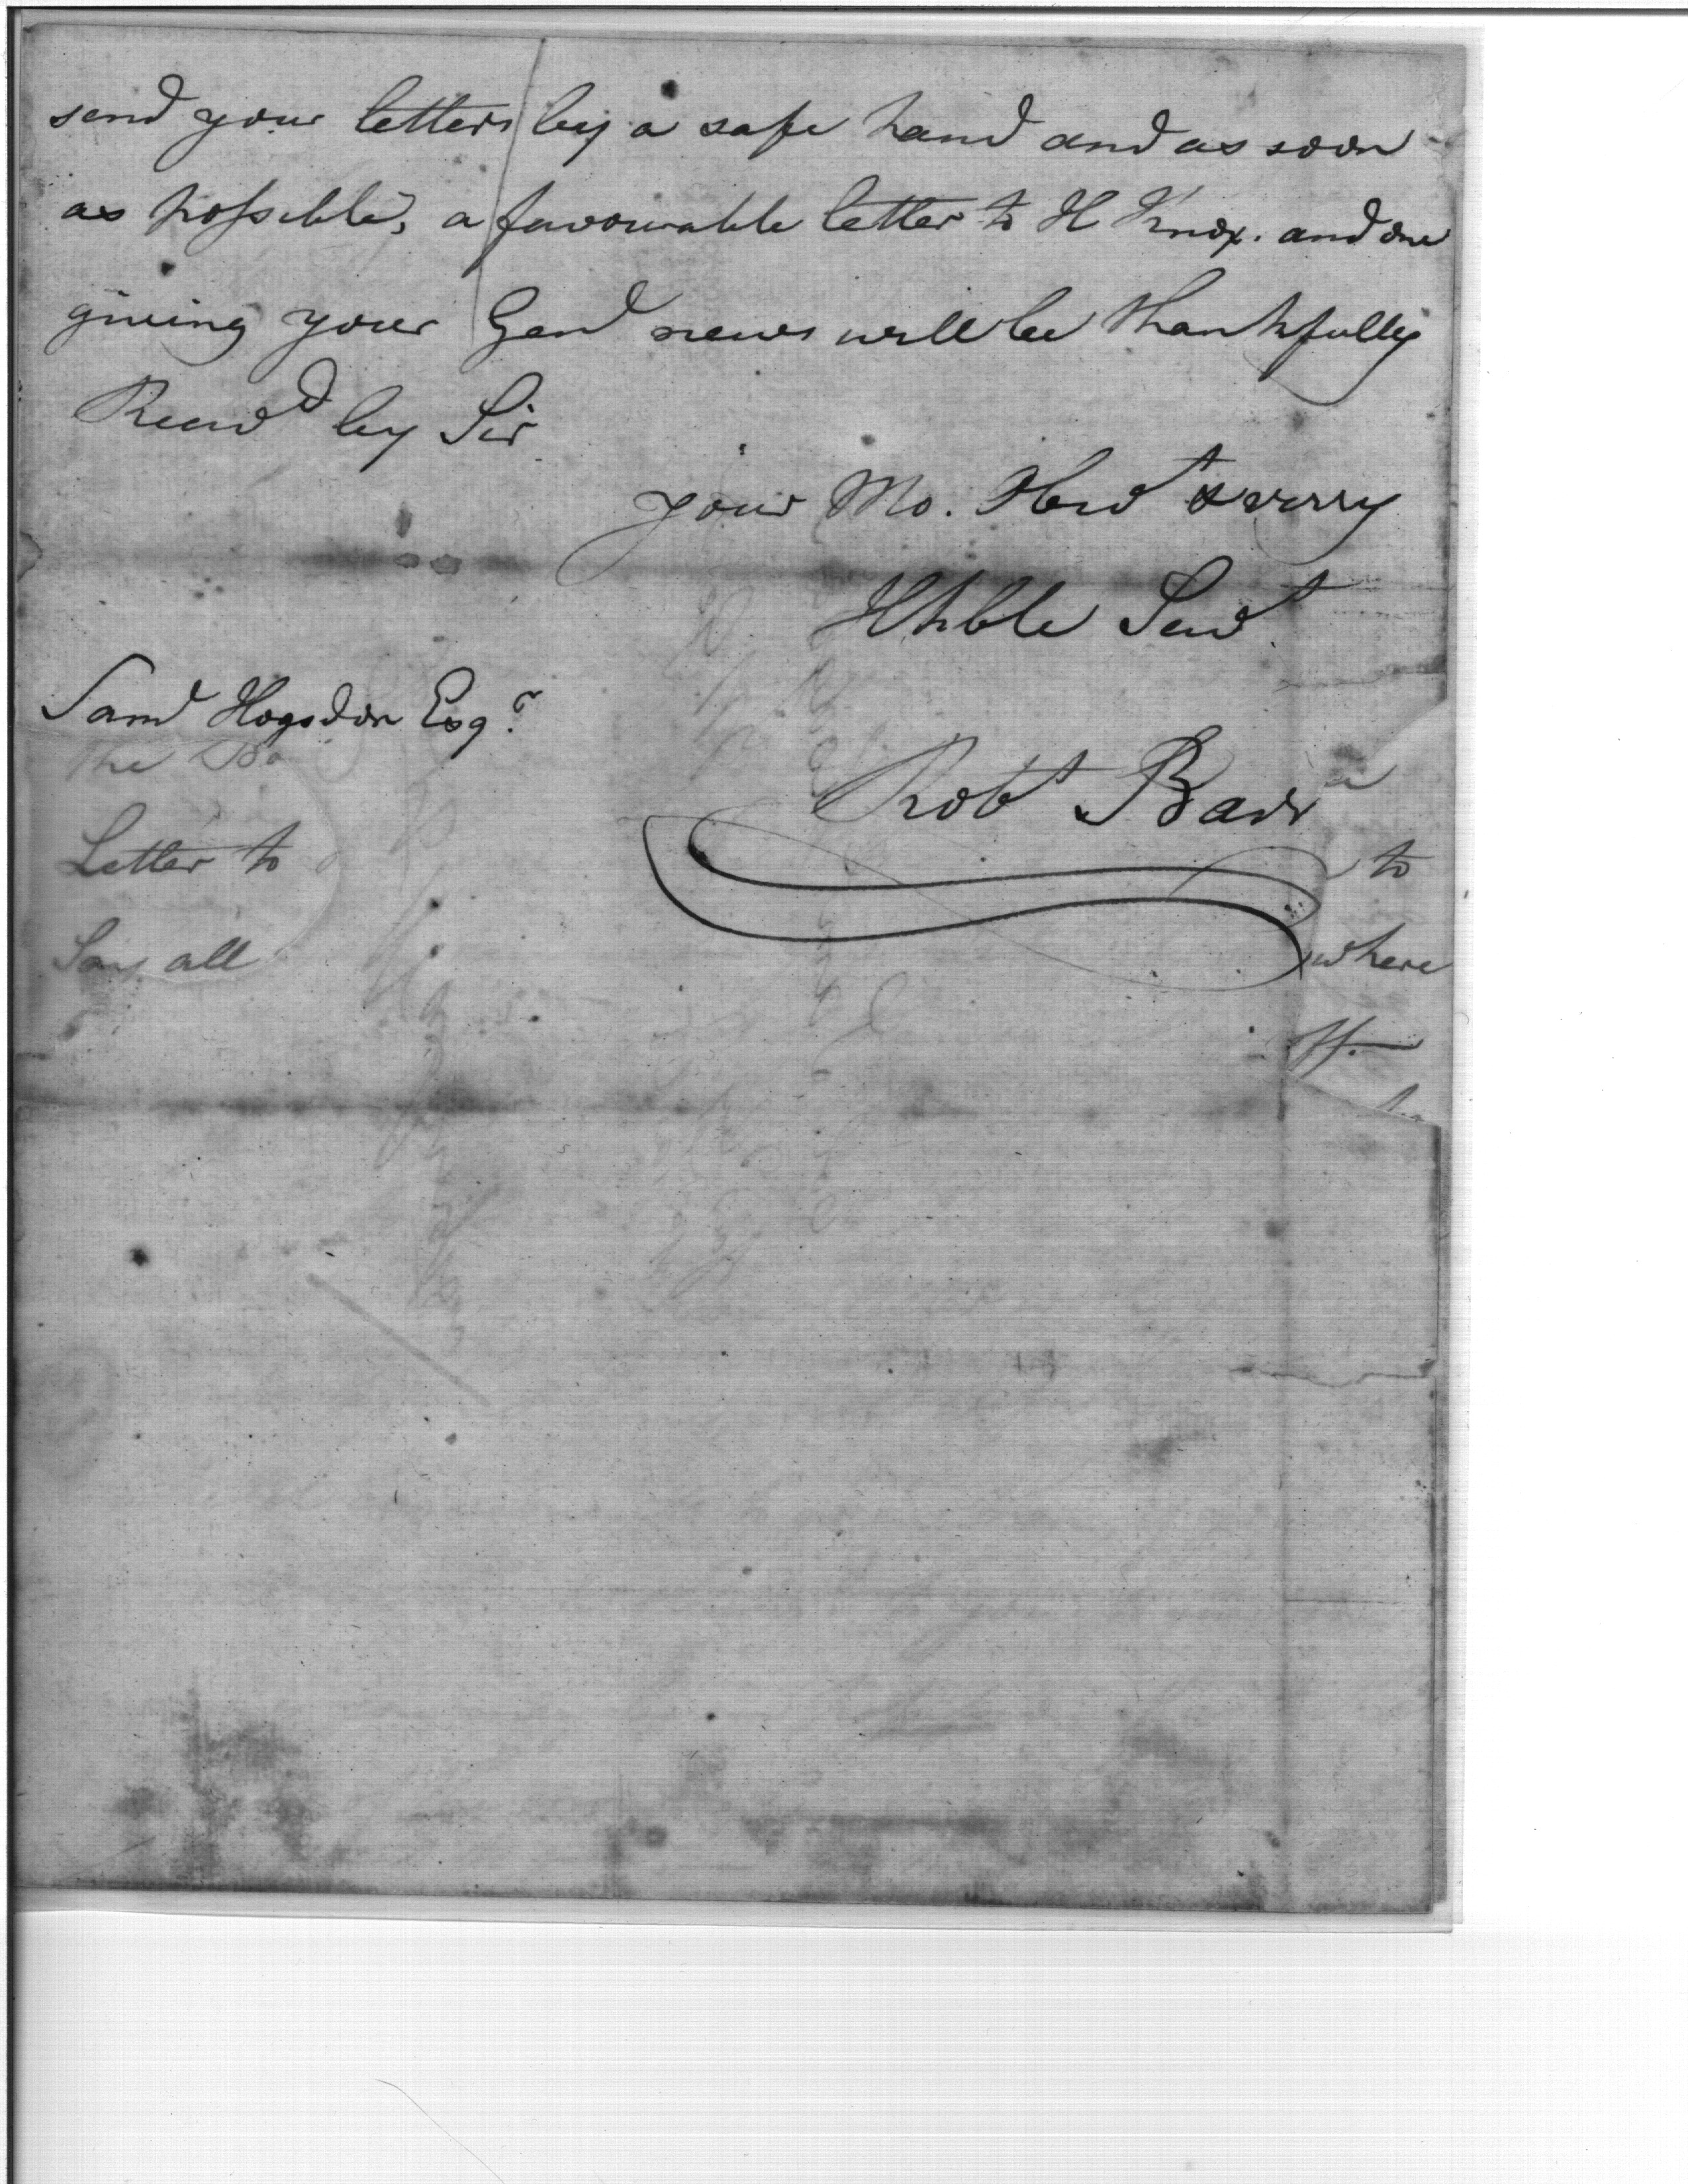 send your letters by a safe hand and as soon
as possible, a favourable letter to H Knox. and one
giving your Genl news will be thankfully
Recevd by Sir
your Mo. Obedt & verry
Hhble Servt
Saml Hogsdon Esqr.
Robt Barr
The Bo
Letter to
Say all
to
where